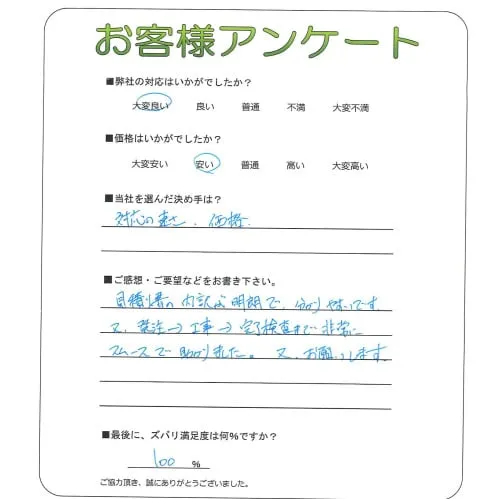 お客様アンケート
■弊社の対応はいかがでしたか？
大変良い 良い 普通 不満 大変不満
■価格はいかがでしたか？
大変安い 安い 普通 高い 大変高い
■当社を選んだ決め手は？
対応の速さ、価格
■ご感想・ご要望などをお書き下さい。
見積書の内訳が明朗で、分かりやすいです
又、発注→工事→完了検査まで非常に
スムースで助かりました。又、お願いします。
■最後に、ズバリ満足度は何%ですか？
100 %
ご協力頂き、誠にありがとうございました。